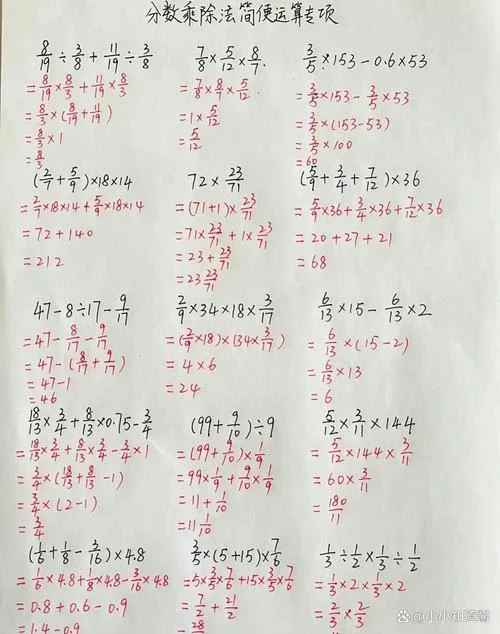 分数乘除法简便运算专项
8/19÷3/8+11/19÷3/8
=8/19×8/3+11/19×8/3
=8/3×(8/19+11/19)
=8/3×1
=8/3
7/8×5/12×8/7
=7/8×8/7×5/12
=1×5/12
=5/12
3/5×153-0.6×53
=3/5×153-3/5×53
=3/5×(153-53)
=3/5×100
=60
(2/7+5/9)×18×14
=2/7×18×14+5/9×18×14
=72+140
=212
72×23/71
=(71+1)×23/71
=71×23/71+1×23/71
=23+23/71
=23 23/71
(5/9+3/4+7/12)×36
=5/9×36+3/4×36+7/12×36
=20+27+21
=68
47-8÷17-9/17
=47-8/17-9/17
=47-(8/17+9/17)
=47-1
=46
2/9×34×18×3/17
=(2/9×18)×(34×3/17)
=4×6
=24
6/13×15-6/13×2
=6/13×(15-2)
=6/13×13
=6
18/13×3/4+8/13×0.75-3/4
=18/13×3/4+8/13×3/4-3/4×1
=3/4×(18/13+8/13-1)
=3/4×(2-1)
=3/4
(99+9/10)÷9
=(99+9/10)×1/9
=99×1/9+9/10×1/9
=11+1/10
=11 1/10
5/12×3/11×144
=5/12×144×3/11
=60×3/11
=180/11
(1/6+1/8-3/16)×4.8
=1/6×4.8+1/8×4.8-3/16×4.8
=0.8+0.6-0.9
=1.4-0.9
3/5×(5+15)×7/6
=5×3/5×7/6+15×3/5×7/6
=7/2+21/2
=28
1/3÷1/2×1/3÷1/2
=1/3×2×1/3×2
=2/3×2/3
@小小知道酱